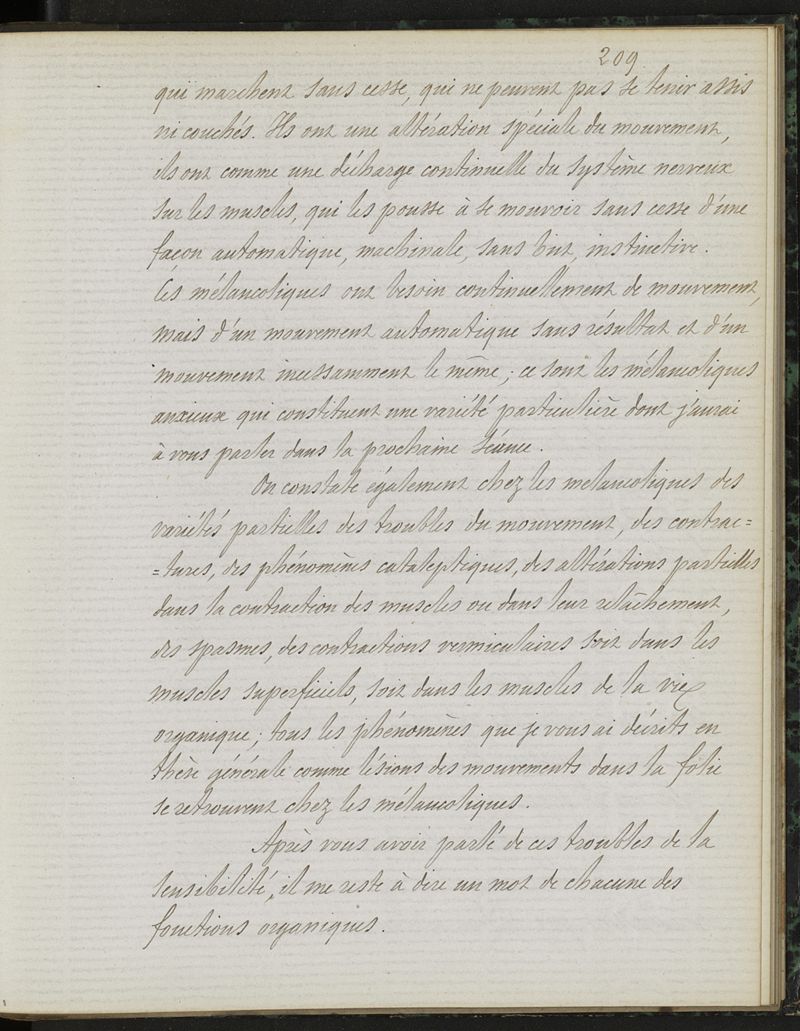 209
qui marchent sans cesse, qui ne peuvent pas se tenir assis
ni couchés. Ils ont une altération spéciale du mouvement,
ils ont comme une décharge continuelle du système nerveux
sur les muscles, qui les pousse à se mouvoir sans cesse d'une
façon automatique, machinale, sans but, instinctive.
Ces mélancoliques ont besoin continuellement de mouvement,
mais d'un mouvement automatique sans résultat et d'un
mouvement incessamment le même; ce sont les mélancoliques
anxieux qui constituent une variété particulière dont j'aurai
à vous parler dans la prochaine séance.
On constate également chez les melancoliques des
variétés partielles des troubles du mouvement, des contrac=
=tures, des phénomènes cataleptiques, des altérations partielles
dans la contraction des muscles ou dans leur relâchement,
des spasmes, des contractions vermiculaires soit dans les
muscles superficiels, soit dans les muscles de la vie
organique; tous les phénomènes que je vous ai décrits en
thèse générale comme lésions des mouvements dans la folie
se retrouvent chez les mélancoliques.
Après vous avoir parlé de ces troubles de la
sensibilité, il me reste à dire un mot de chacune des
fonctions organiques.